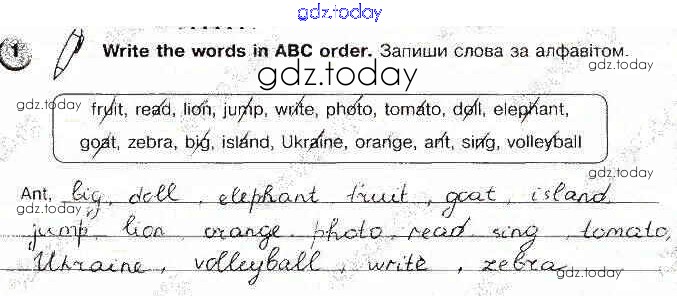 gdz.today
1 Write the words in ABC order. Запиши слова за алфавітом.
gdz.today gdz.today
gdz.today
fruit, read, lion, jump, write, photo, tomato, doll, elephant,
goat, zebra, big, island, Ukraine, orange, ant, sing, volleyball
gdz.today
Ant, big, doll, elephant fruit, goat, island,
gdz.today
jump, lion, orange, photo, read, sing, tomato,
gdz.today
Ukraine, volleyball, write, zebra
gdz.today
gdz.today